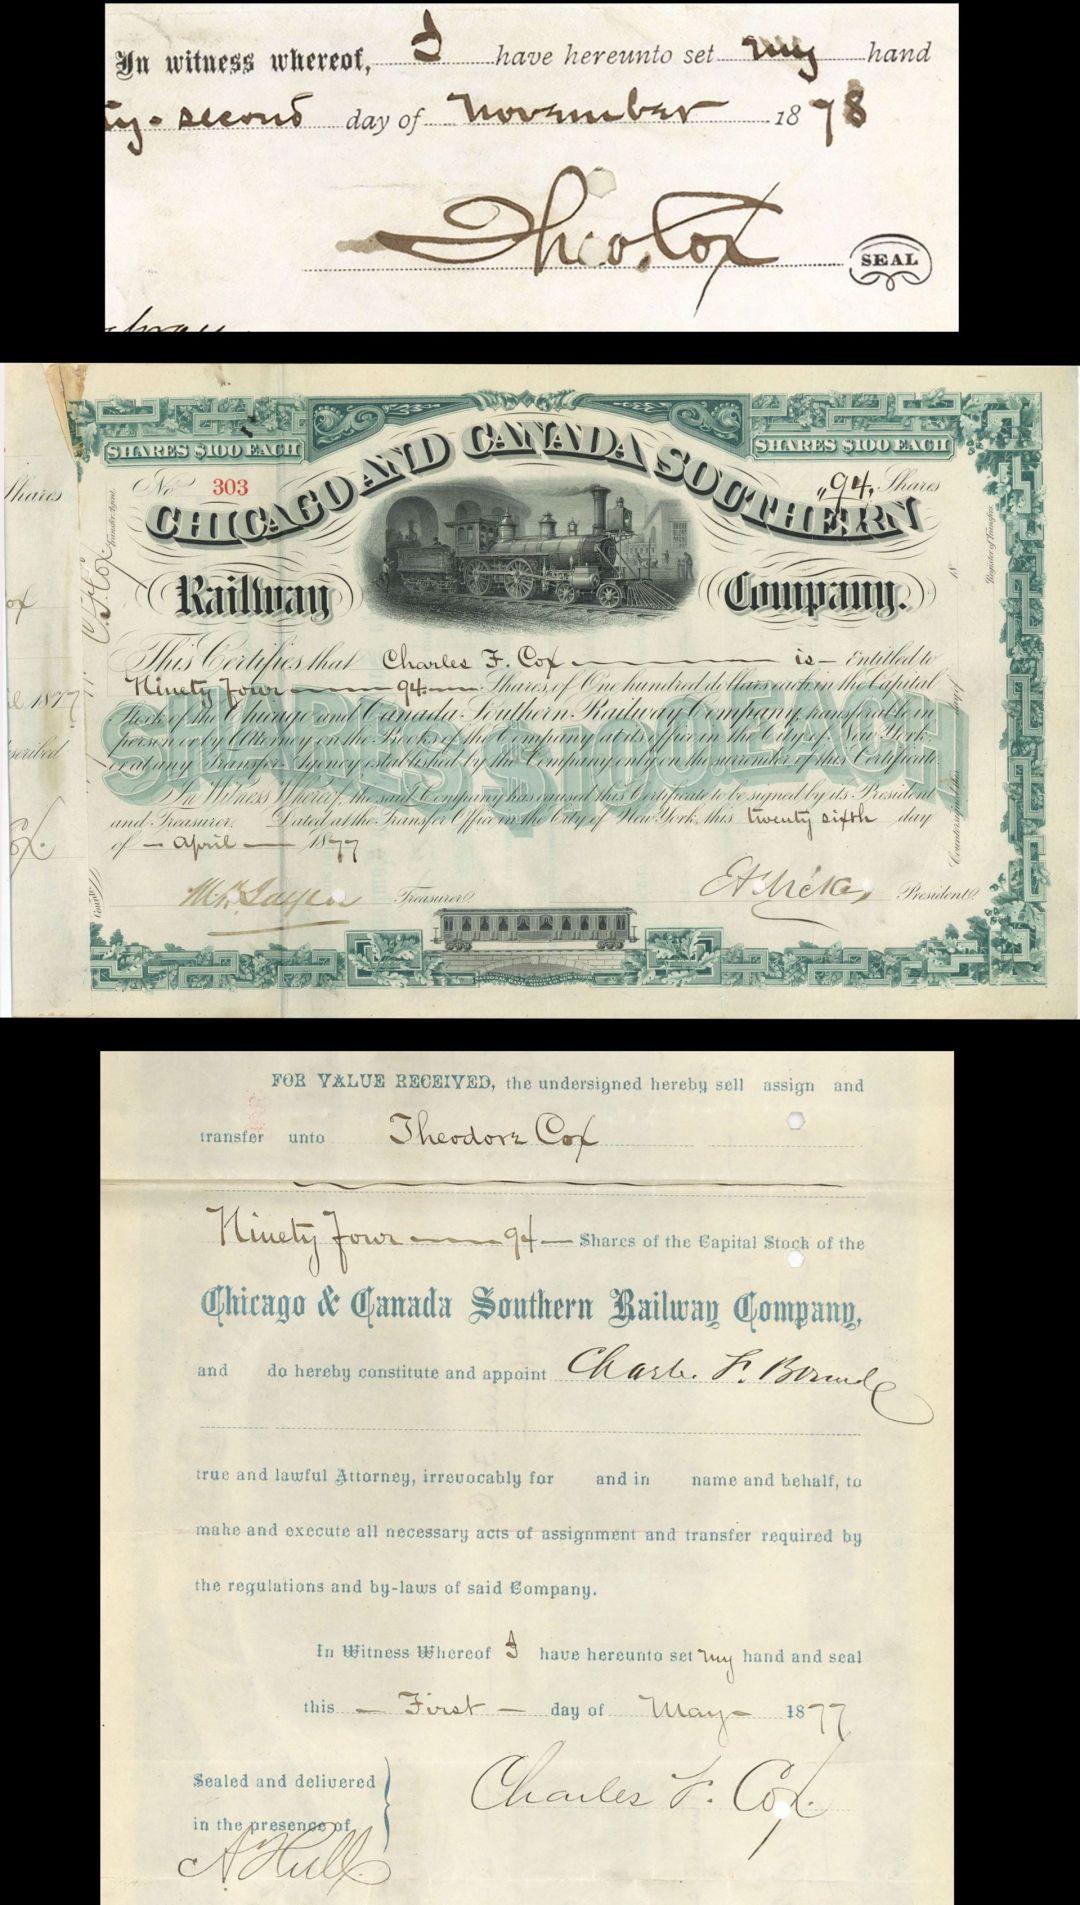 In witness whereof, I have hereunto set my hand
ty-second day of November 1878
Theo. Cox
SEAL
SHARES $100 EACH
SHARES $100 EACH
No 303
94 Shares
Shares
CHICAGO AND CANADA SOUTHERN
Railway Company.
This Certifies that Charles F. Cox is Entitled to
Ninety Four 94 Shares of One hundred dollars each in the Capital
Stock of the Chicago and Canada Southern Railway Company, transferable in
person or by Attorney on the Books of the Company at its office in the City of New York,
or at any Transfer Agency established by the Company only on the surrender of this Certificate.
SHARES $100. EACH
In Witness Whereof, the said Company has caused this Certificate to be signed by its President
and Treasurer. Dated at the Transfer Office in the City of New York, this twenty sixth day
of April 1877
Treasurer. President.
Transfer Agent.
C. F. Cox
Registrar of Transfers
Countersigned this day of 18
1877
FOR VALUE RECEIVED, the undersigned hereby sell assign and
transfer unto Theodore Cox
Ninety Four 94 Shares of the Capital Stock of the
Chicago & Canada Southern Railway Company,
and do hereby constitute and appoint Charles F.
true and lawful Attorney, irrevocably for and in name and behalf, to
make and execute all necessary acts of assignment and transfer required by
the regulations and by-laws of said Company.
In Witness Whereof I have hereunto set my hand and seal
this First day of May 1877
Sealed and delivered
in the presence of
Charles F. Cox.
A Hull